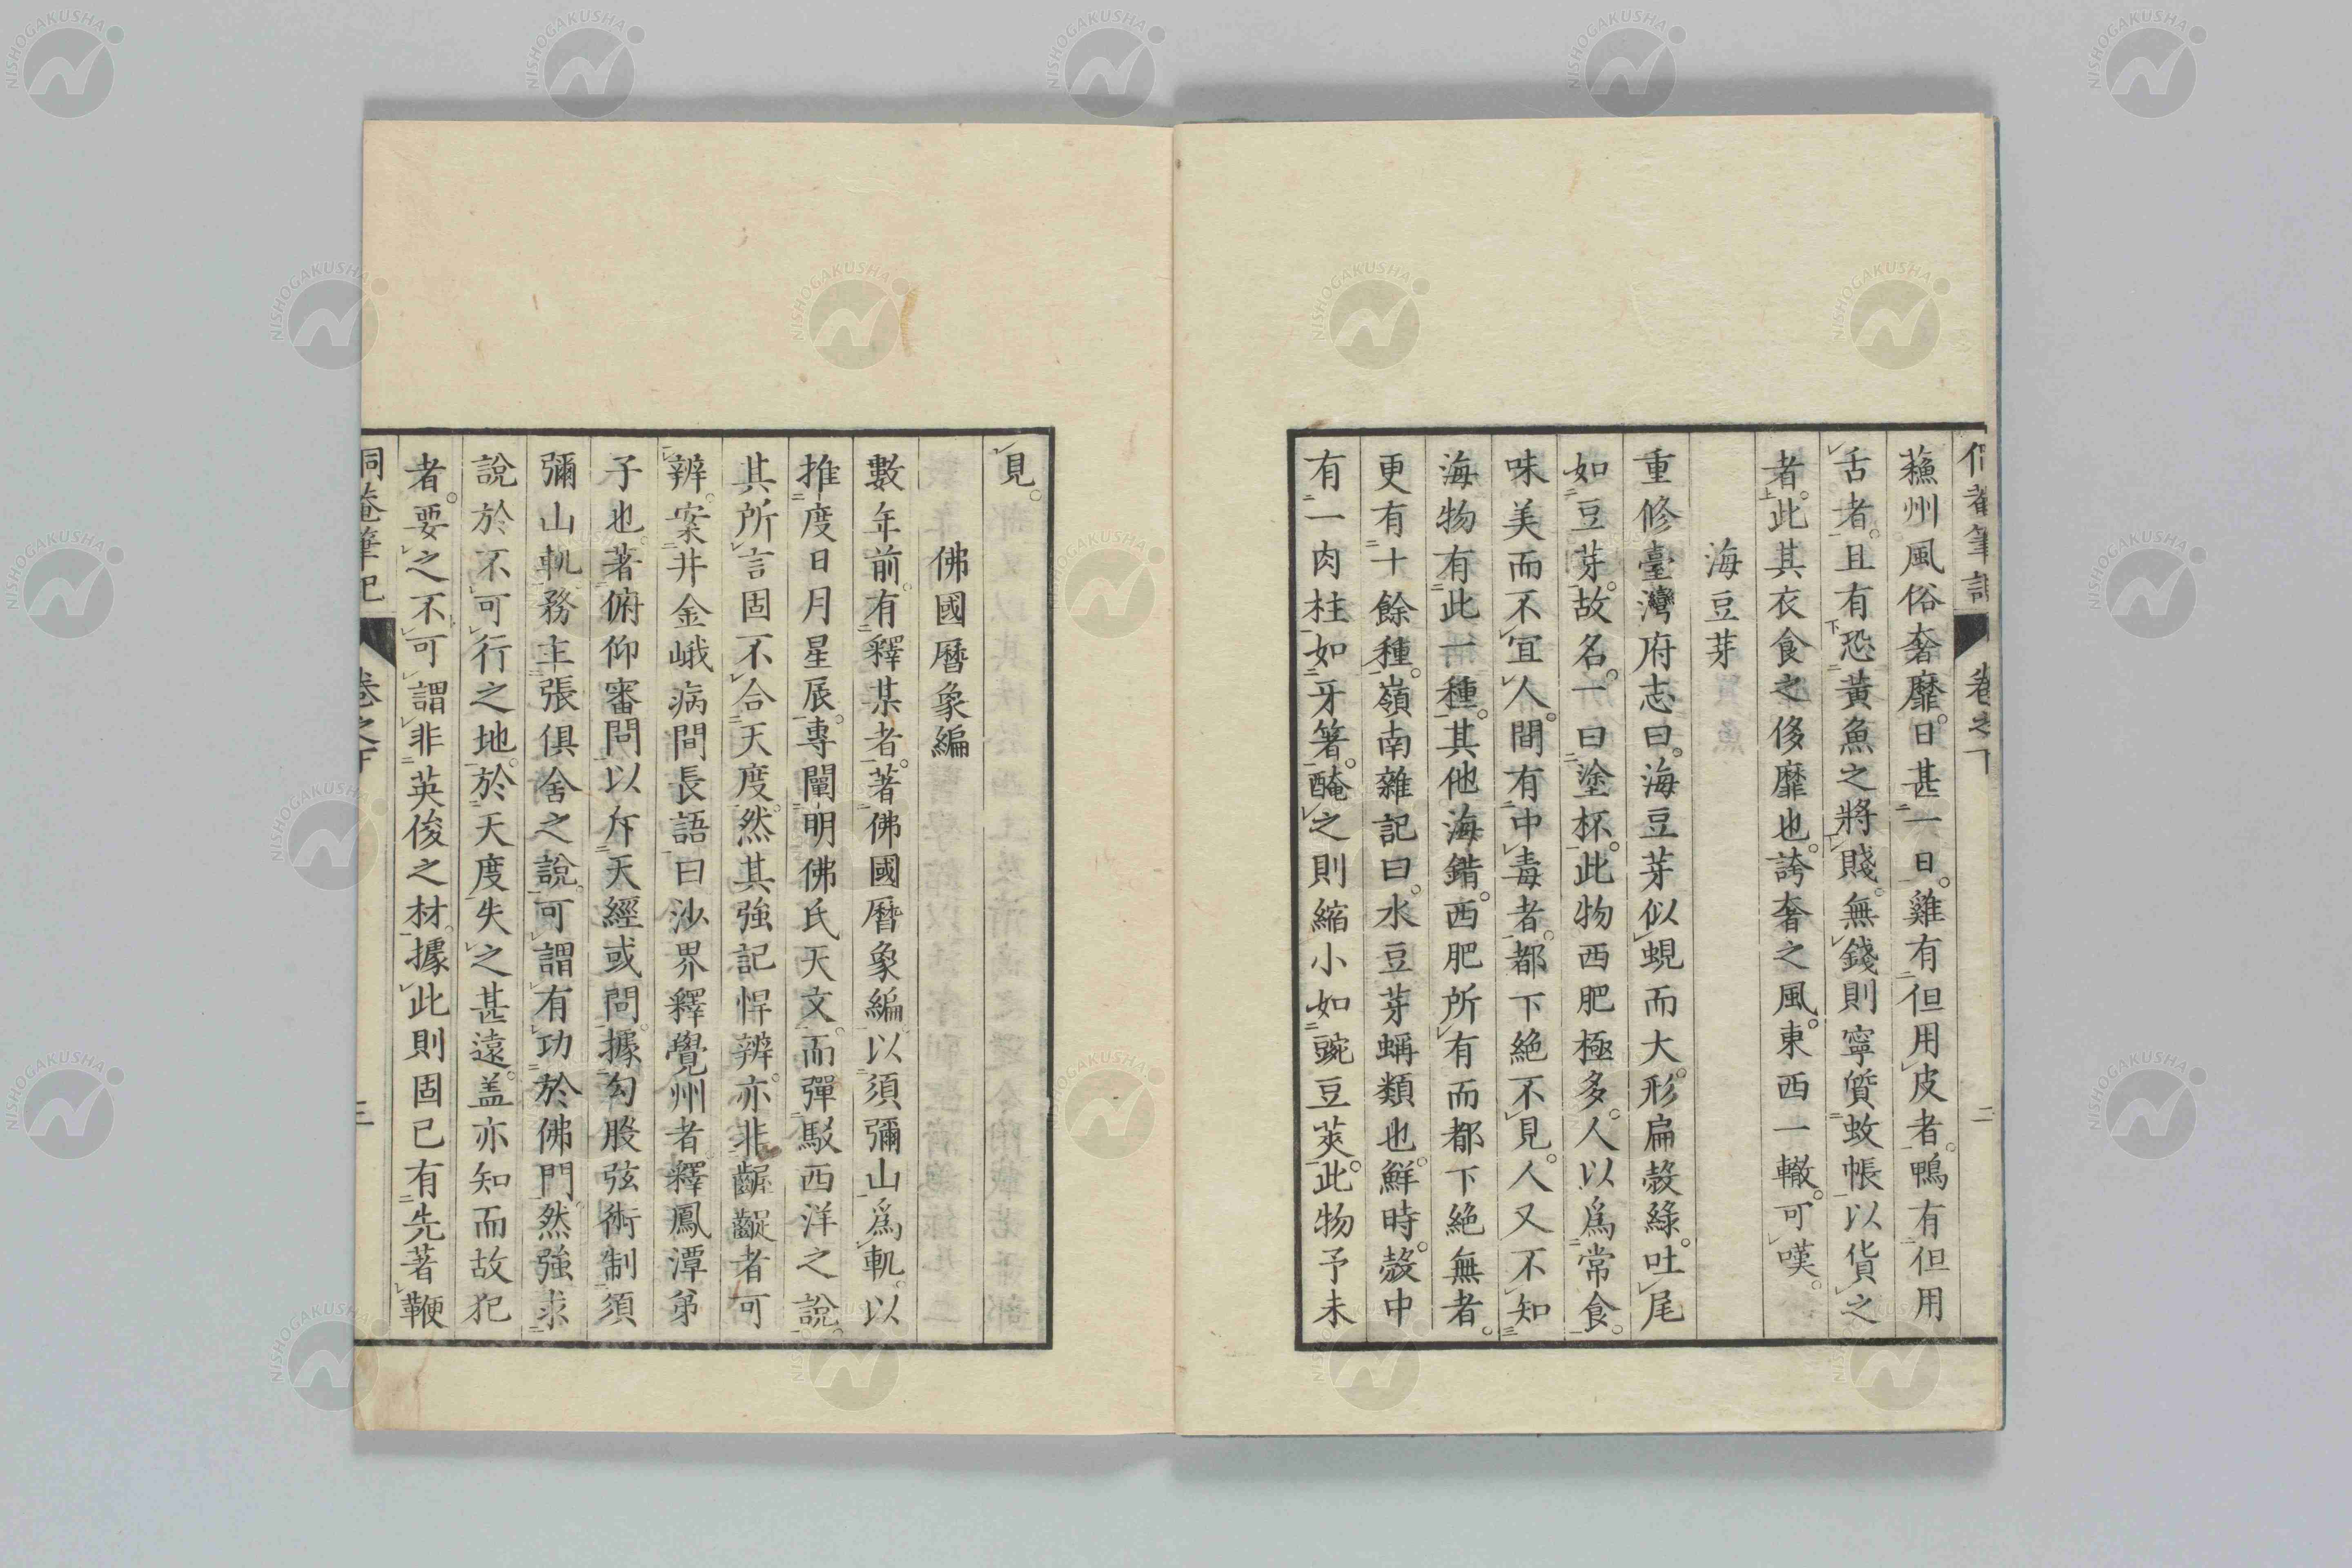 蘓州風俗奢靡。日甚一日。雞有但用皮者。鴨有但用
舌者。且有恐黃魚之將賤。無錢則寧質蚊帳以貨之
者。此其衣食之侈靡也。誇奢之風。東西一轍。可嘆。
海豆芽
重修臺灣府志曰。海豆芽似蜆而大。形扁殼綠。吐尾
如豆芽。故名。一曰塗杯。此物西肥極多。人以爲常食。
味美而不宜人。間有中毒者。都下絶不見。人又不知
海物有此一種。其他海錯。西肥所有而都下絶無者。
更有十餘種。嶺南雜記曰。水豆芽蝸類也。鮮時。殼中
有一肉柱如牙箸。醃之則縮小如豌豆莢。此物予未
見。
佛國曆象編
數年前。有釋某者。著佛國曆象編。以須彌山爲軌。以
推度日月星辰。專闡明佛氏天文。而彈駁西洋之說。
其所言固不合天度。然其強記悍辨。亦非齷齪者可
辨。案井金峨病間長語曰沙界釋覺州者。釋鳳潭弟
子也。著俯仰審問以斥天經或問。據勾股弦術制須
彌山軌。務主張俱舍之說。可謂有功於佛門。然強求
說於不可行之地。於天度失之甚遠。盖亦知而故犯
者。要之不可謂非英俊之材。據此則固已有先著鞭
侗菴筆記 卷之下 三
NISHOGAKUSHA